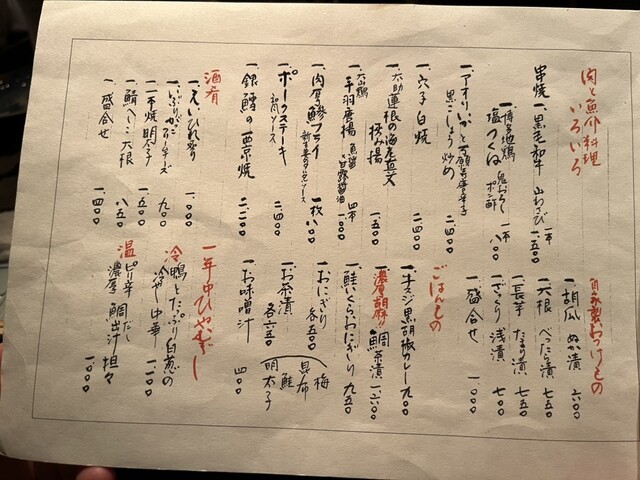 肉と魚介料理
いろいろ
串焼
一、黒毛和牛 山わさび 一本 一、五〇〇
一、博多地鶏 塩つくね 鬼おろし ポン酢 一本 八〇〇
一、アオリいかと万願寺唐辛子
黒こしょう炒め 二、四〇〇
一、穴子白焼 二、四〇〇
一、太助蓮根の海老真丈
挟み揚 一、五〇〇
一、大山鶏
手羽唐揚 魚醤 甘露醤油 四本 一、〇〇〇
一、肉厚鯵フライ 一枚 八〇〇
一、ポークステーキ
和風ソース 二、四〇〇
一、銀鱈の西京焼 二、二〇〇
酒肴
一、えいひれ炙り 一、〇〇〇
一、いぶりがっこチーズ 九〇〇
一、一本焼明太子 一、五〇〇
一、鯖へしこ大根 八五〇
一、盛合せ 一、四〇〇
自家製おつけもの
一、胡瓜 ぬか漬 六〇〇
一、大根 べったら漬 七五〇
一、長芋 たまり漬 七五〇
一、ざっくり浅漬 七〇〇
一、盛合せ 一、〇〇〇
ごはんもの
一、牛スジ黒胡椒カレー 九〇〇
一、濃厚胡麻!! 鯛茶漬 一、六〇〇
一、鮭いくらおにぎり 九五〇
一、おにぎり 各五〇〇
一、お茶漬 各六五〇
梅
昆布
鮭
明太子
一、お味噌汁 四〇〇
一年中ひやむぎ
冷 鴨とたっぷり白葱の
冷やし中華 一、二〇〇
温 ピリ辛 鯛だし
濃厚鯛出汁担々 一、〇〇〇